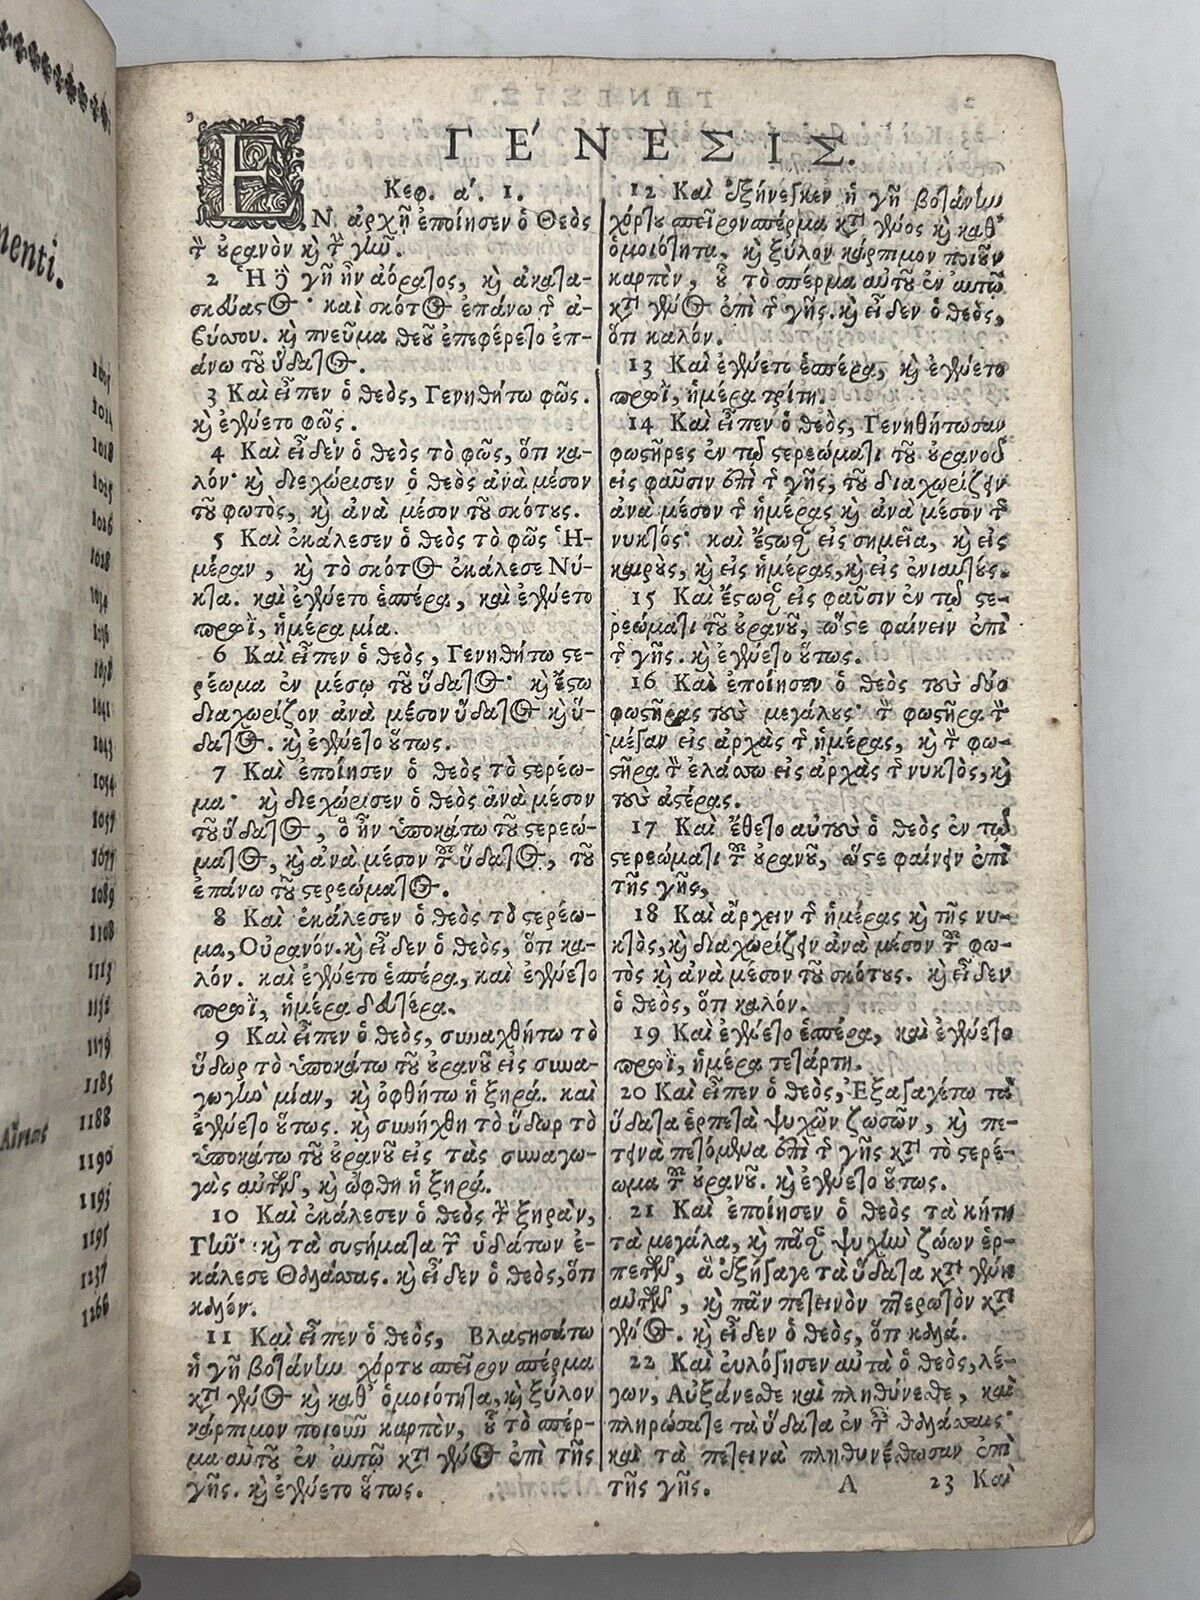 menti.
1015
1014
1018
1025
1026
1028
1034
1036
1038
1041
1043
1054
1057
1077
1089
1108
1113
1152
1179
1185
1188
1190
1193
1195
1237
1266
ΓΕΝΕΣΙΣ.
Κεφ. α΄. 1.
ΕΝ ἀρχῇ ἐποίησεν ὁ Θεὸς
τὸν οὐρανὸν καὶ τὴν γῆν.
2 Ἡ δὲ γῆ ἦν ἀόρατος, καὶ ἀκατα-
σκεύαστος· καὶ σκότος ἐπάνω τῆς ἀ-
βύσσου. καὶ πνεῦμα θεοῦ ἐπεφέρετο ἐπ-
άνω τοῦ ὕδατος.
3 Καὶ εἶπεν ὁ θεὸς, Γενηθήτω φῶς.
καὶ ἐγένετο φῶς.
4 Καὶ εἶδεν ὁ θεὸς τὸ φῶς, ὅτι κα-
λόν· καὶ διεχώρισεν ὁ θεὸς ἀνὰ μέσον
τοῦ φωτὸς, καὶ ἀνὰ μέσον τοῦ σκότους.
5 Καὶ ἐκάλεσεν ὁ θεὸς τὸ φῶς Ἡ-
μέραν, καὶ τὸ σκότος ἐκάλεσε Νύ-
κτα. καὶ ἐγένετο ἑσπέρα, καὶ ἐγένετο
πρωῒ, ἡμέρα μία.
6 Καὶ εἶπεν ὁ θεὸς, Γενηθήτω στε-
ρέωμα ἐν μέσῳ τοῦ ὕδατος· καὶ ἔστω
διαχωρίζον ἀνὰ μέσον ὕδατος καὶ ὕ-
δατος. καὶ ἐγένετο οὕτως.
7 Καὶ ἐποίησεν ὁ θεὸς τὸ στερέω-
μα· καὶ διεχώρισεν ὁ θεὸς ἀνὰ μέσον
τοῦ ὕδατος, ὃ ἦν ὑποκάτω τοῦ στερεώ-
ματος, καὶ ἀνὰ μέσον τοῦ ὕδατος, τοῦ
ἐπάνω τοῦ στερεώματος.
8 Καὶ ἐκάλεσεν ὁ θεὸς τὸ στερέω-
μα, Οὐρανόν. καὶ εἶδεν ὁ θεὸς, ὅτι κα-
λόν. καὶ ἐγένετο ἑσπέρα, καὶ ἐγένετο
πρωῒ, ἡμέρα δευτέρα.
9 Καὶ εἶπεν ὁ θεὸς, συναχθήτω τὸ
ὕδωρ τὸ ὑποκάτω τοῦ οὐρανοῦ εἰς συνα-
γωγὴν μίαν, καὶ ὀφθήτω ἡ ξηρά. καὶ
ἐγένετο οὕτως. καὶ συνήχθη τὸ ὕδωρ τὸ
ὑποκάτω τοῦ οὐρανοῦ εἰς τὰς συναγω-
γὰς αὐτῶν, καὶ ὤφθη ἡ ξηρά.
10 Καὶ ἐκάλεσεν ὁ θεὸς τὴν ξηρὰν,
Γῆν· καὶ τὰ συστήματα τῶν ὑδάτων ἐ-
κάλεσε Θαλάσσας. καὶ εἶδεν ὁ θεὸς, ὅτι
καλόν.
11 Καὶ εἶπεν ὁ θεὸς, Βλαστησάτω
ἡ γῆ βοτάνην χόρτου σπεῖρον σπέρμα
κατὰ γένος καὶ καθ' ὁμοιότητα, καὶ ξύλον
κάρπιμον ποιοῦν καρπὸν, οὗ τὸ σπέρ-
μα αὐτοῦ ἐν αὐτῷ κατὰ γένος ἐπὶ τῆς
γῆς. καὶ ἐγένετο οὕτως.
12 Καὶ ἐξήνεγκεν ἡ γῆ βοτάνην
χόρτου σπεῖρον σπέρμα κατὰ γένος καὶ καθ'
ὁμοιότητα, καὶ ξύλον κάρπιμον ποιοῦν
καρπὸν, οὗ τὸ σπέρμα αὐτοῦ ἐν αὐτῷ
κατὰ γένος ἐπὶ τῆς γῆς. καὶ εἶδεν ὁ θεὸς,
ὅτι καλόν.
13 Καὶ ἐγένετο ἑσπέρα, καὶ ἐγένετο
πρωῒ, ἡμέρα τρίτη.
14 Καὶ εἶπεν ὁ θεὸς, Γενηθήτωσαν
φωστῆρες ἐν τῷ στερεώματι τοῦ οὐρανοῦ
εἰς φαῦσιν ἐπὶ τῆς γῆς, τοῦ διαχωρίζειν
ἀνὰ μέσον τῆς ἡμέρας καὶ ἀνὰ μέσον τῆς
νυκτός· καὶ ἔστωσαν εἰς σημεῖα, καὶ εἰς
καιροὺς, καὶ εἰς ἡμέρας, καὶ εἰς ἐνιαυτούς.
15 Καὶ ἔστωσαν εἰς φαῦσιν ἐν τῷ στε-
ρεώματι τοῦ οὐρανοῦ, ὥστε φαίνειν ἐπὶ
τῆς γῆς. καὶ ἐγένετο οὕτως.
16 Καὶ ἐποίησεν ὁ θεὸς τοὺς δύο
φωστῆρας τοὺς μεγάλους· τὸν φωστῆρα τὸν
μέγαν εἰς ἀρχὰς τῆς ἡμέρας, καὶ τὸν φω-
στῆρα τὸν ἐλάσσω εἰς ἀρχὰς τῆς νυκτὸς, καὶ
τοὺς ἀστέρας.
17 Καὶ ἔθετο αὐτοὺς ὁ θεὸς ἐν τῷ
στερεώματι τοῦ οὐρανοῦ, ὥστε φαίνειν ἐπὶ
τῆς γῆς,
18 Καὶ ἄρχειν τῆς ἡμέρας καὶ τῆς νυ-
κτὸς, καὶ διαχωρίζειν ἀνὰ μέσον τοῦ φω-
τὸς καὶ ἀνὰ μέσον τοῦ σκότους. καὶ εἶδεν
ὁ θεὸς, ὅτι καλόν.
19 Καὶ ἐγένετο ἑσπέρα, καὶ ἐγένετο
πρωῒ, ἡμέρα τετάρτη.
20 Καὶ εἶπεν ὁ θεὸς, Ἐξαγαγέτω τὰ
ὕδατα ἑρπετὰ ψυχῶν ζωσῶν, καὶ πε-
τεινὰ πετόμενα ἐπὶ τῆς γῆς κατὰ τὸ στερέ-
ωμα τοῦ οὐρανοῦ. καὶ ἐγένετο οὕτως.
21 Καὶ ἐποίησεν ὁ θεὸς τὰ κήτη
τὰ μεγάλα, καὶ πᾶσαν ψυχὴν ζώων ἑρ-
πετῶν, ἃ ἐξήγαγε τὰ ὕδατα κατὰ γένη
αὐτῶν, καὶ πᾶν πετεινὸν πτερωτὸν κατὰ
γένος. καὶ εἶδεν ὁ θεὸς, ὅτι καλά.
22 Καὶ εὐλόγησεν αὐτὰ ὁ θεὸς, λέ-
γων, Αὐξάνεσθε καὶ πληθύνεσθε, καὶ
πληρώσατε τὰ ὕδατα ἐν ταῖς θαλάσσαις·
καὶ τὰ πετεινὰ πληθυνέσθωσαν ἐπὶ
τῆς γῆς.
A 23 Καὶ